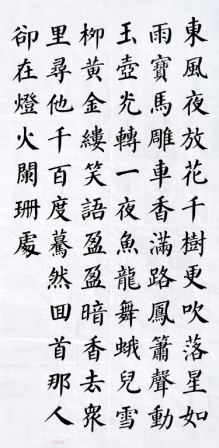 東風夜放花千樹更吹落星如
雨寶馬雕車香滿路鳳簫聲動
玉壺光轉一夜魚龍舞蛾兒雪
柳黃金縷笑語盈盈暗香去衆
里尋他千百度驀然回首那人
卻在燈火闌珊處